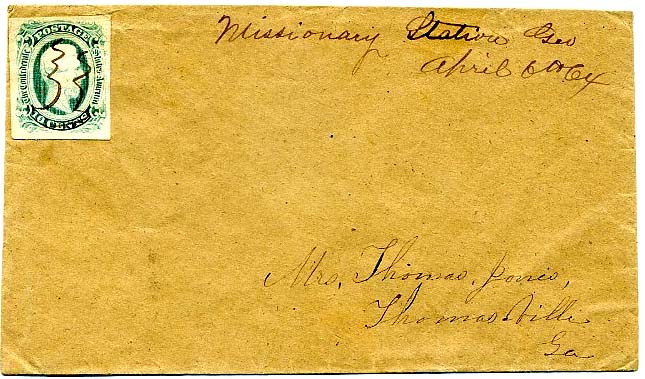 POSTAGE
The Confederate States America
10 CENTS
Missionary Station Geo
April 6th 64
Mrs, Thomas, Jones,
Thomasville
Ga